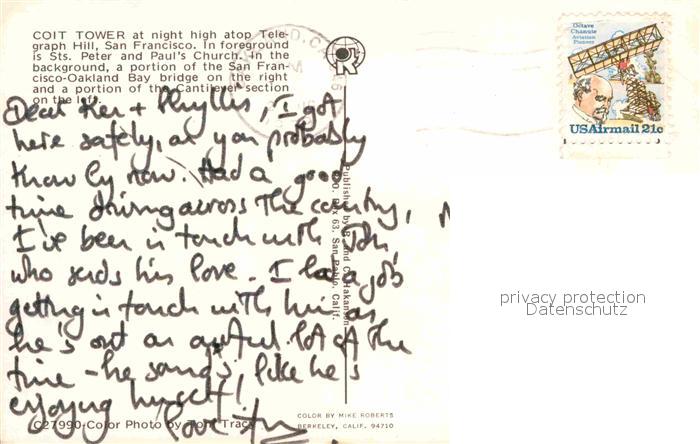 COIT TOWER at night high atop Tele-
graph Hill, San Francisco. In foreground
is Sts. Peter and Paul's Church. In the
background, a portion of the San Fran-
cisco-Oakland Bay bridge on the right
and a portion of the Cantilever section
on the left.
Dear Ken + Phyllis, I got
here safely, as you probably
know by now. Had a good
time driving across the country,
I've been in touch with John,
who sends his love. I had a job
getting in touch with him as
he's out an awful lot of the
time - he sounds like he's
enjoying himself!
Love
C27990-Color Photo by Tom Tracy
Published by R. and C. Hakanson
P.O. Box 63, San Pablo, Calif.
COLOR BY MIKE ROBERTS
BERKELEY, CALIF. 94710
Octave
Chanute
Aviation
Pioneer
USAirmail 21c
privacy protection
Datenschutz